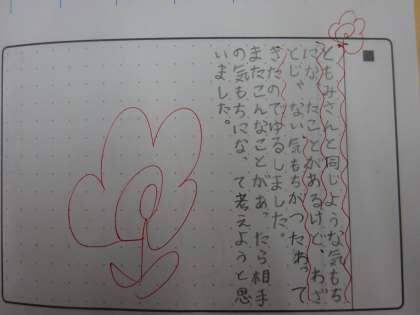 ともみさんと同じような気もち
になったことがあるけど、わざ
とじゃない気もちがつたわって
きたのでゆるしました。
またこんなことがあったら相手
の気もちになって考えようと思
いました。